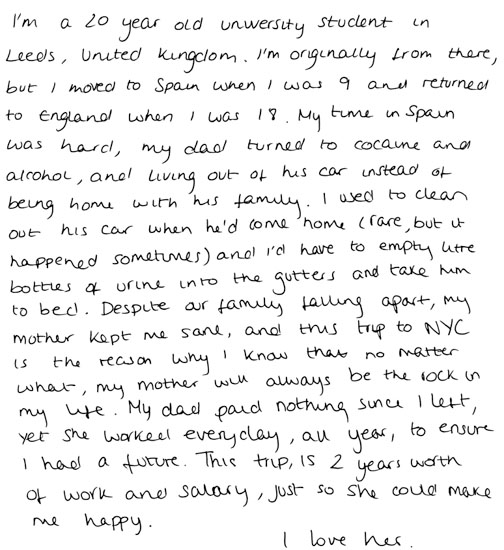 I'm a 20 year old university student in
Leeds, United Kingdom. I'm originally from there,
but I moved to Spain when I was 9 and returned
to England when I was 18. My time in Spain
was hard, my dad turned to cocaine and
alcohol, and living out of his car instead of
being home with his family. I used to clean
out his car when he'd come home (rare, but it
happened sometimes) and I'd have to empty litre
bottles of urine into the gutters and take him
to bed. Despite our family falling apart, my
mother kept me sane, and this trip to NYC
is the reason why I know that no matter
what, my mother will always be the rock in
my life. My dad paid nothing since I left,
yet she worked everyday, all year, to ensure
I had a future. This trip, is 2 years worth
of work and salary, just so she could make
me happy.
I love her.